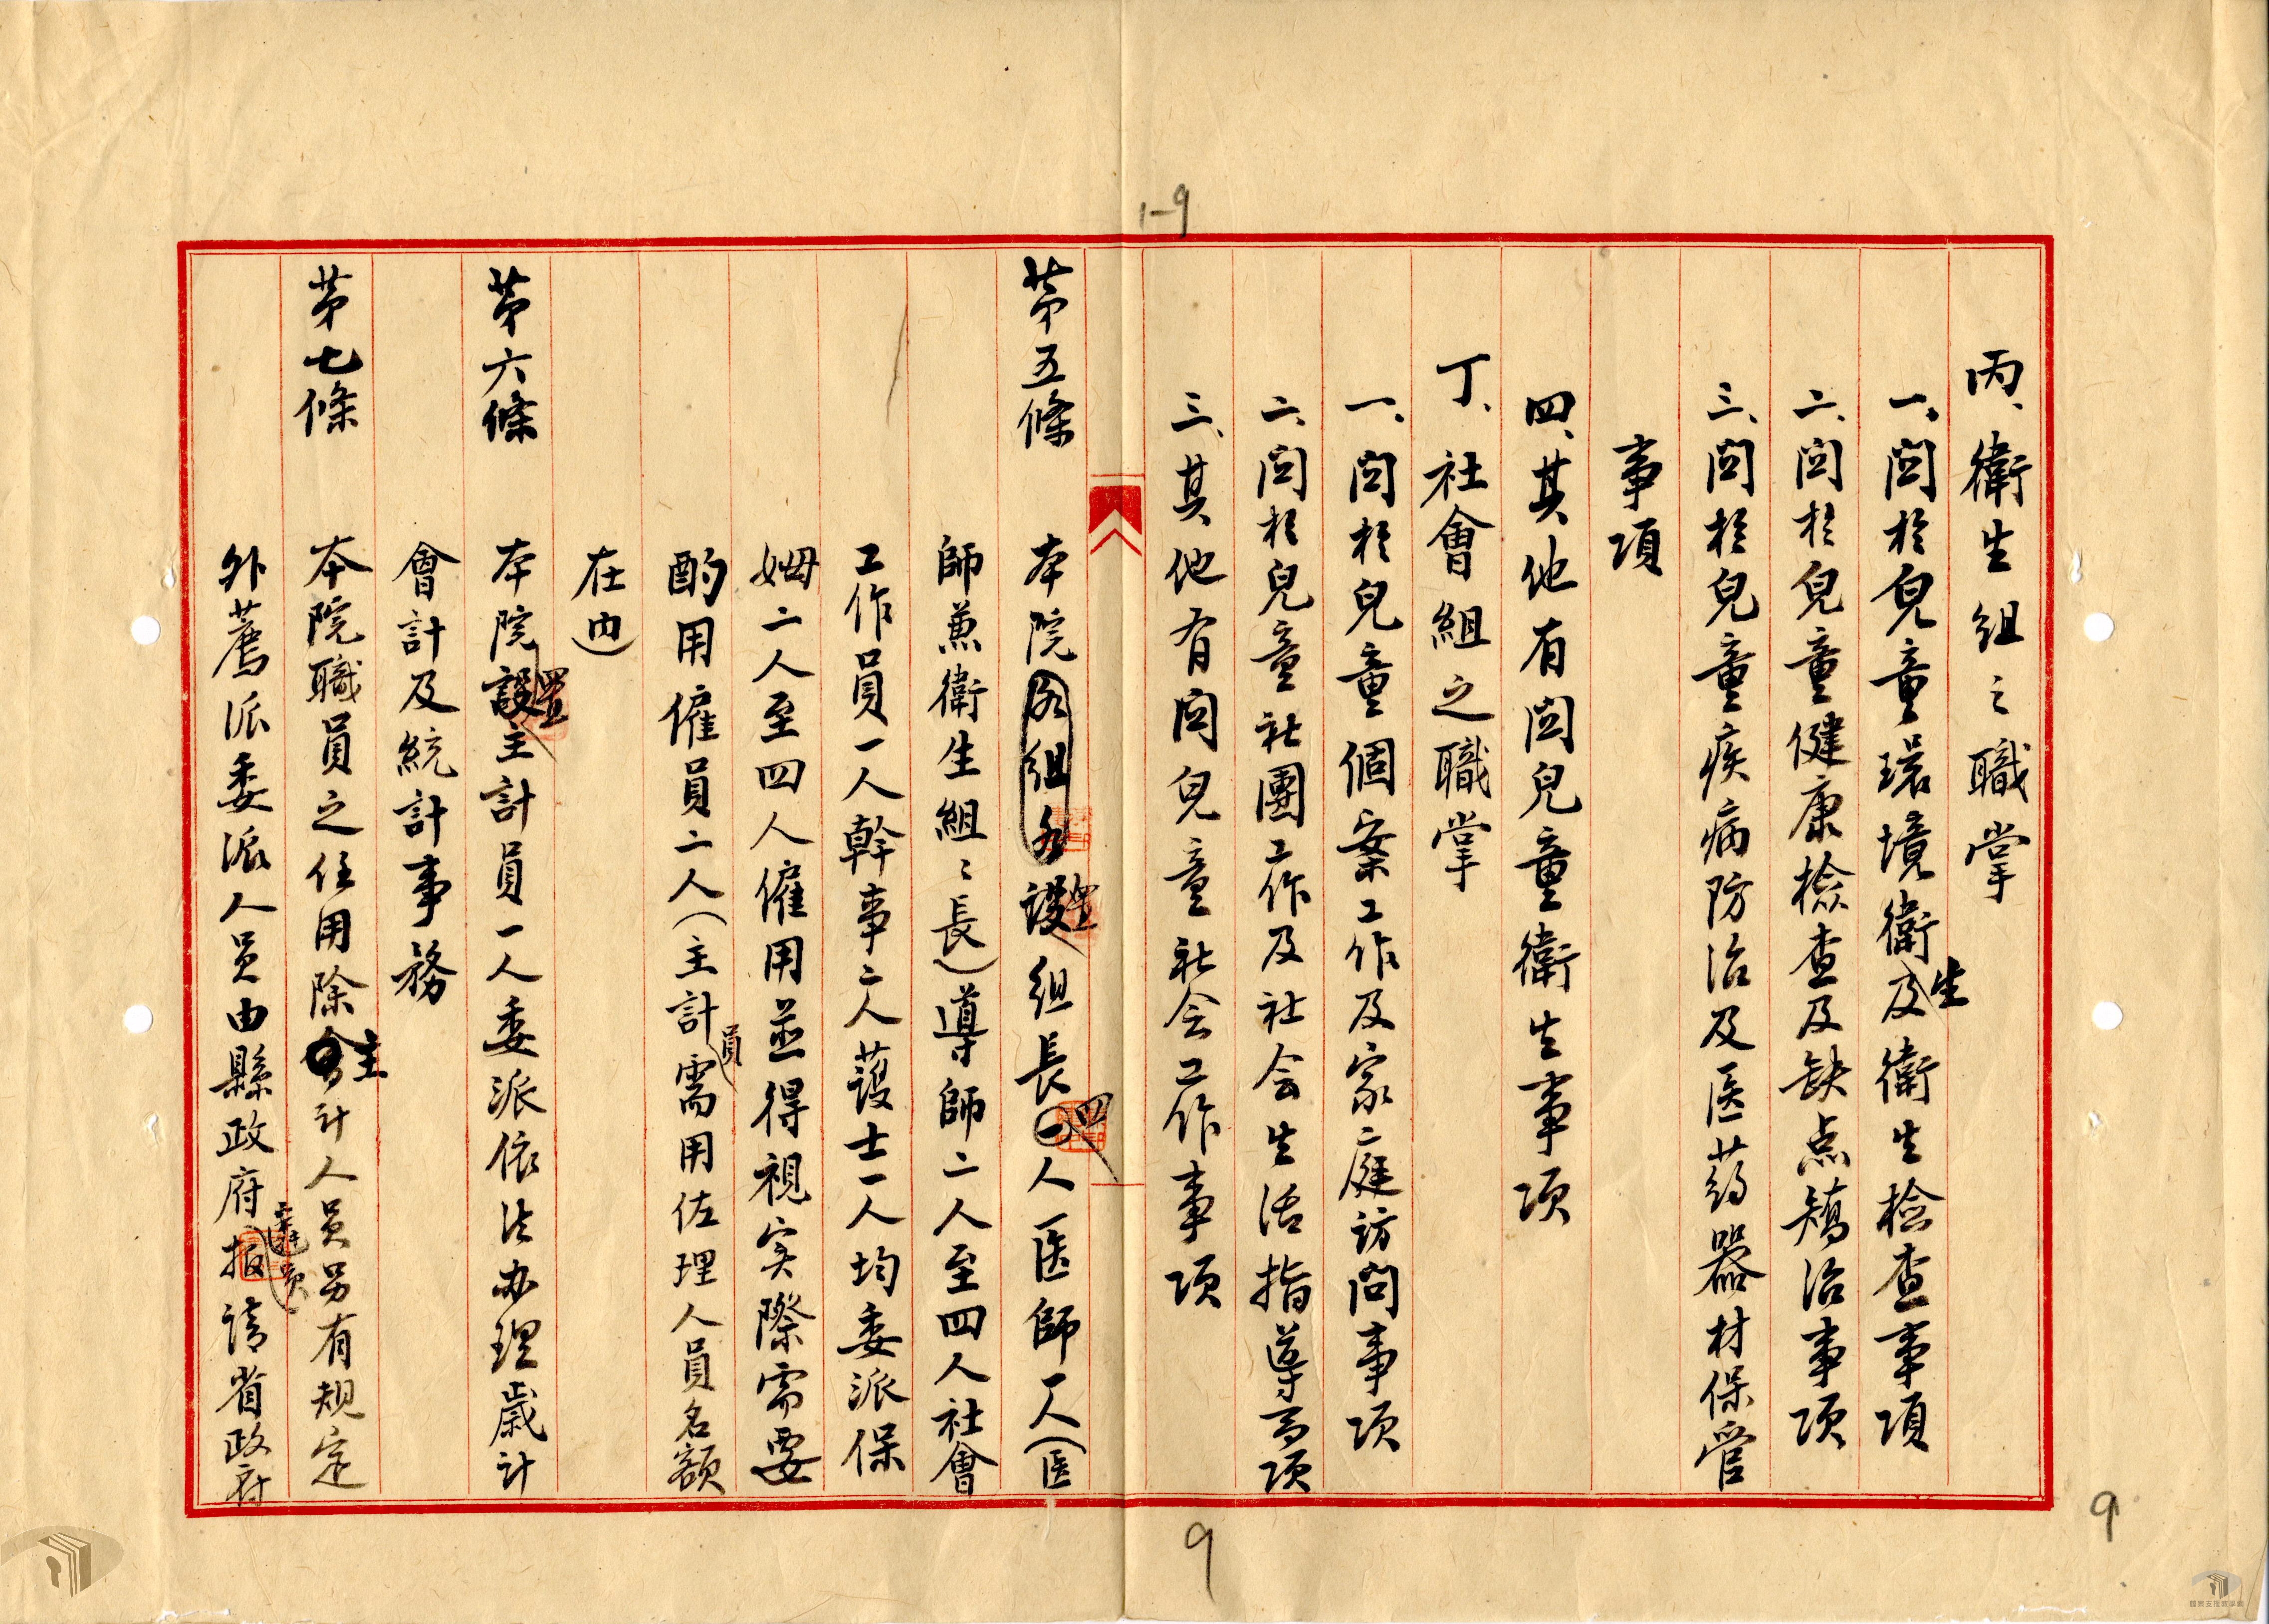 1-9
丙、衛生組之職掌
一、関於兒童環境衛生及衛生檢查事項
二、関於兒童健康檢查及缺点矯治事項
三、関於兒童疾病防治及医葯器材保管
事項
四、其他有関兒童衛生事項
丁、社會組之職掌
一、関於兒童個案工作及家庭訪問事項
二、関於兒童社團工作及社会生活指導事項
三、其他有関兒童社会工作事項
第五條 本院各組各設置組長一四人医師一人（医
師兼衛生組々長）導師二人至四人社會
工作員一人幹事二人護士一人均委派保
姆二人至四人僱用並得視实際需要
酌用僱員二人（主計員需用佐理人員名額
在內）
第六條 本院設置主計員一人委派依法办理歲計
會計及統計事務
第七條 本院職員之任用除會主計人員另有規定
外薦派委派人員由縣政府遴員报請省政府
9
9
國家文化記憶庫